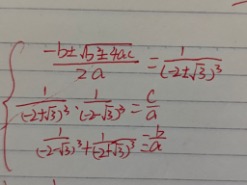 { (-b±√(b²±4ac))/(2a) = 1/(-2±√3)³
1/(-2+√3)³ · 1/(-2-√3)³ = c/a
1/(-2-√3)³ + 1/(-2+√3)³ = b/a